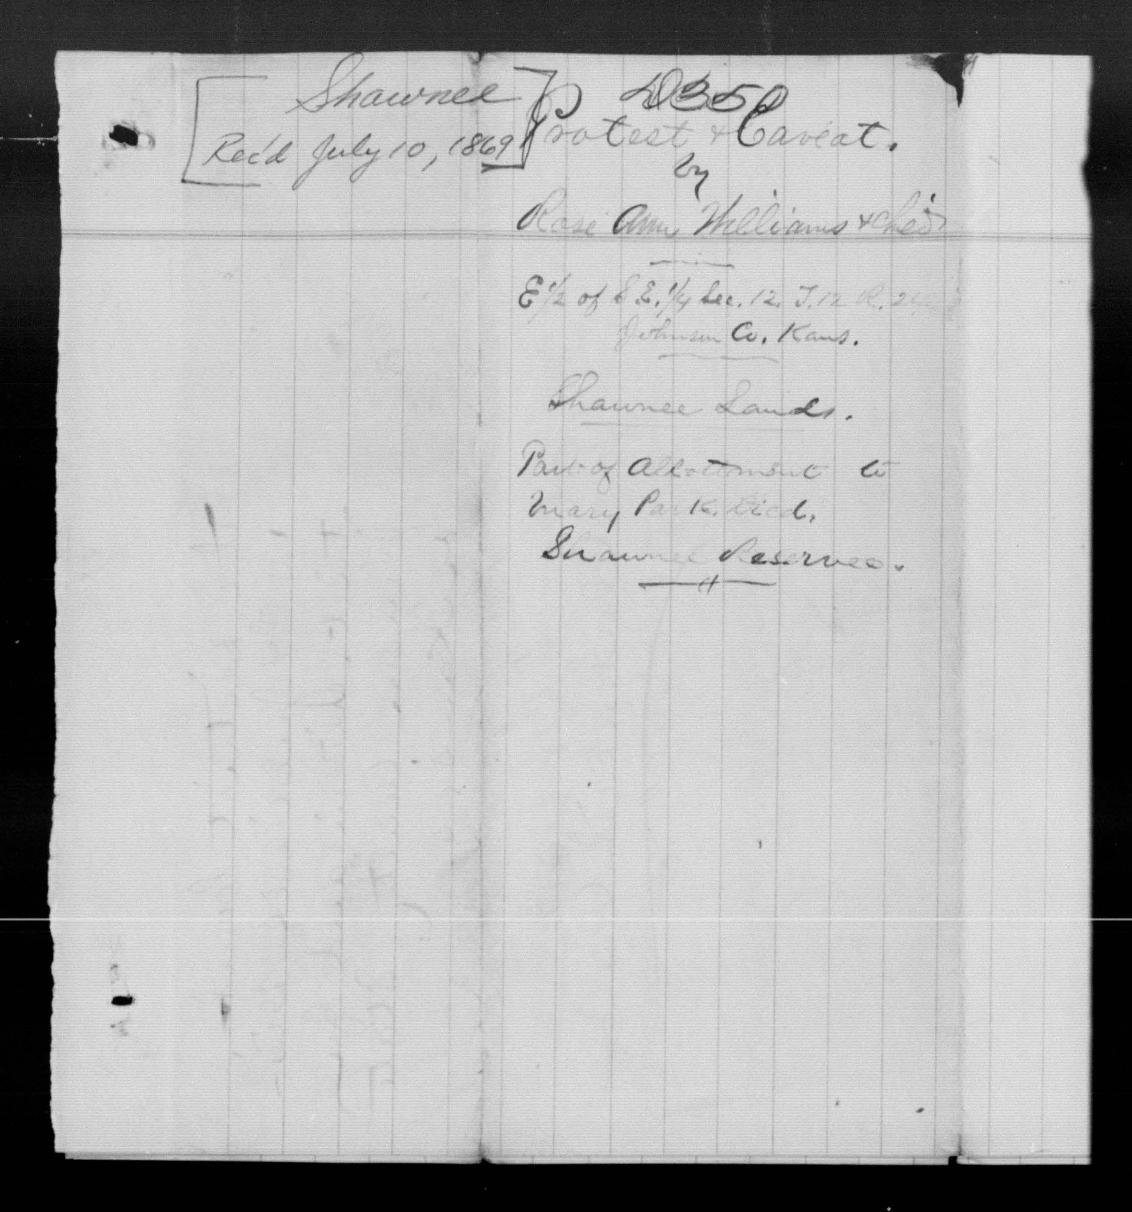 Shawnee
Rec'd July 10, 1869
D350
Protest & Caveat.
by
Rose Ann Williams &
E 1/2 of S E. 1/4 Sec. 12. T. 12 R. 24
Johnson Co. Kans.
Shawnee Lands.
Part of Allottment to
Mary Park. Decd.
Shawnee Reserves.